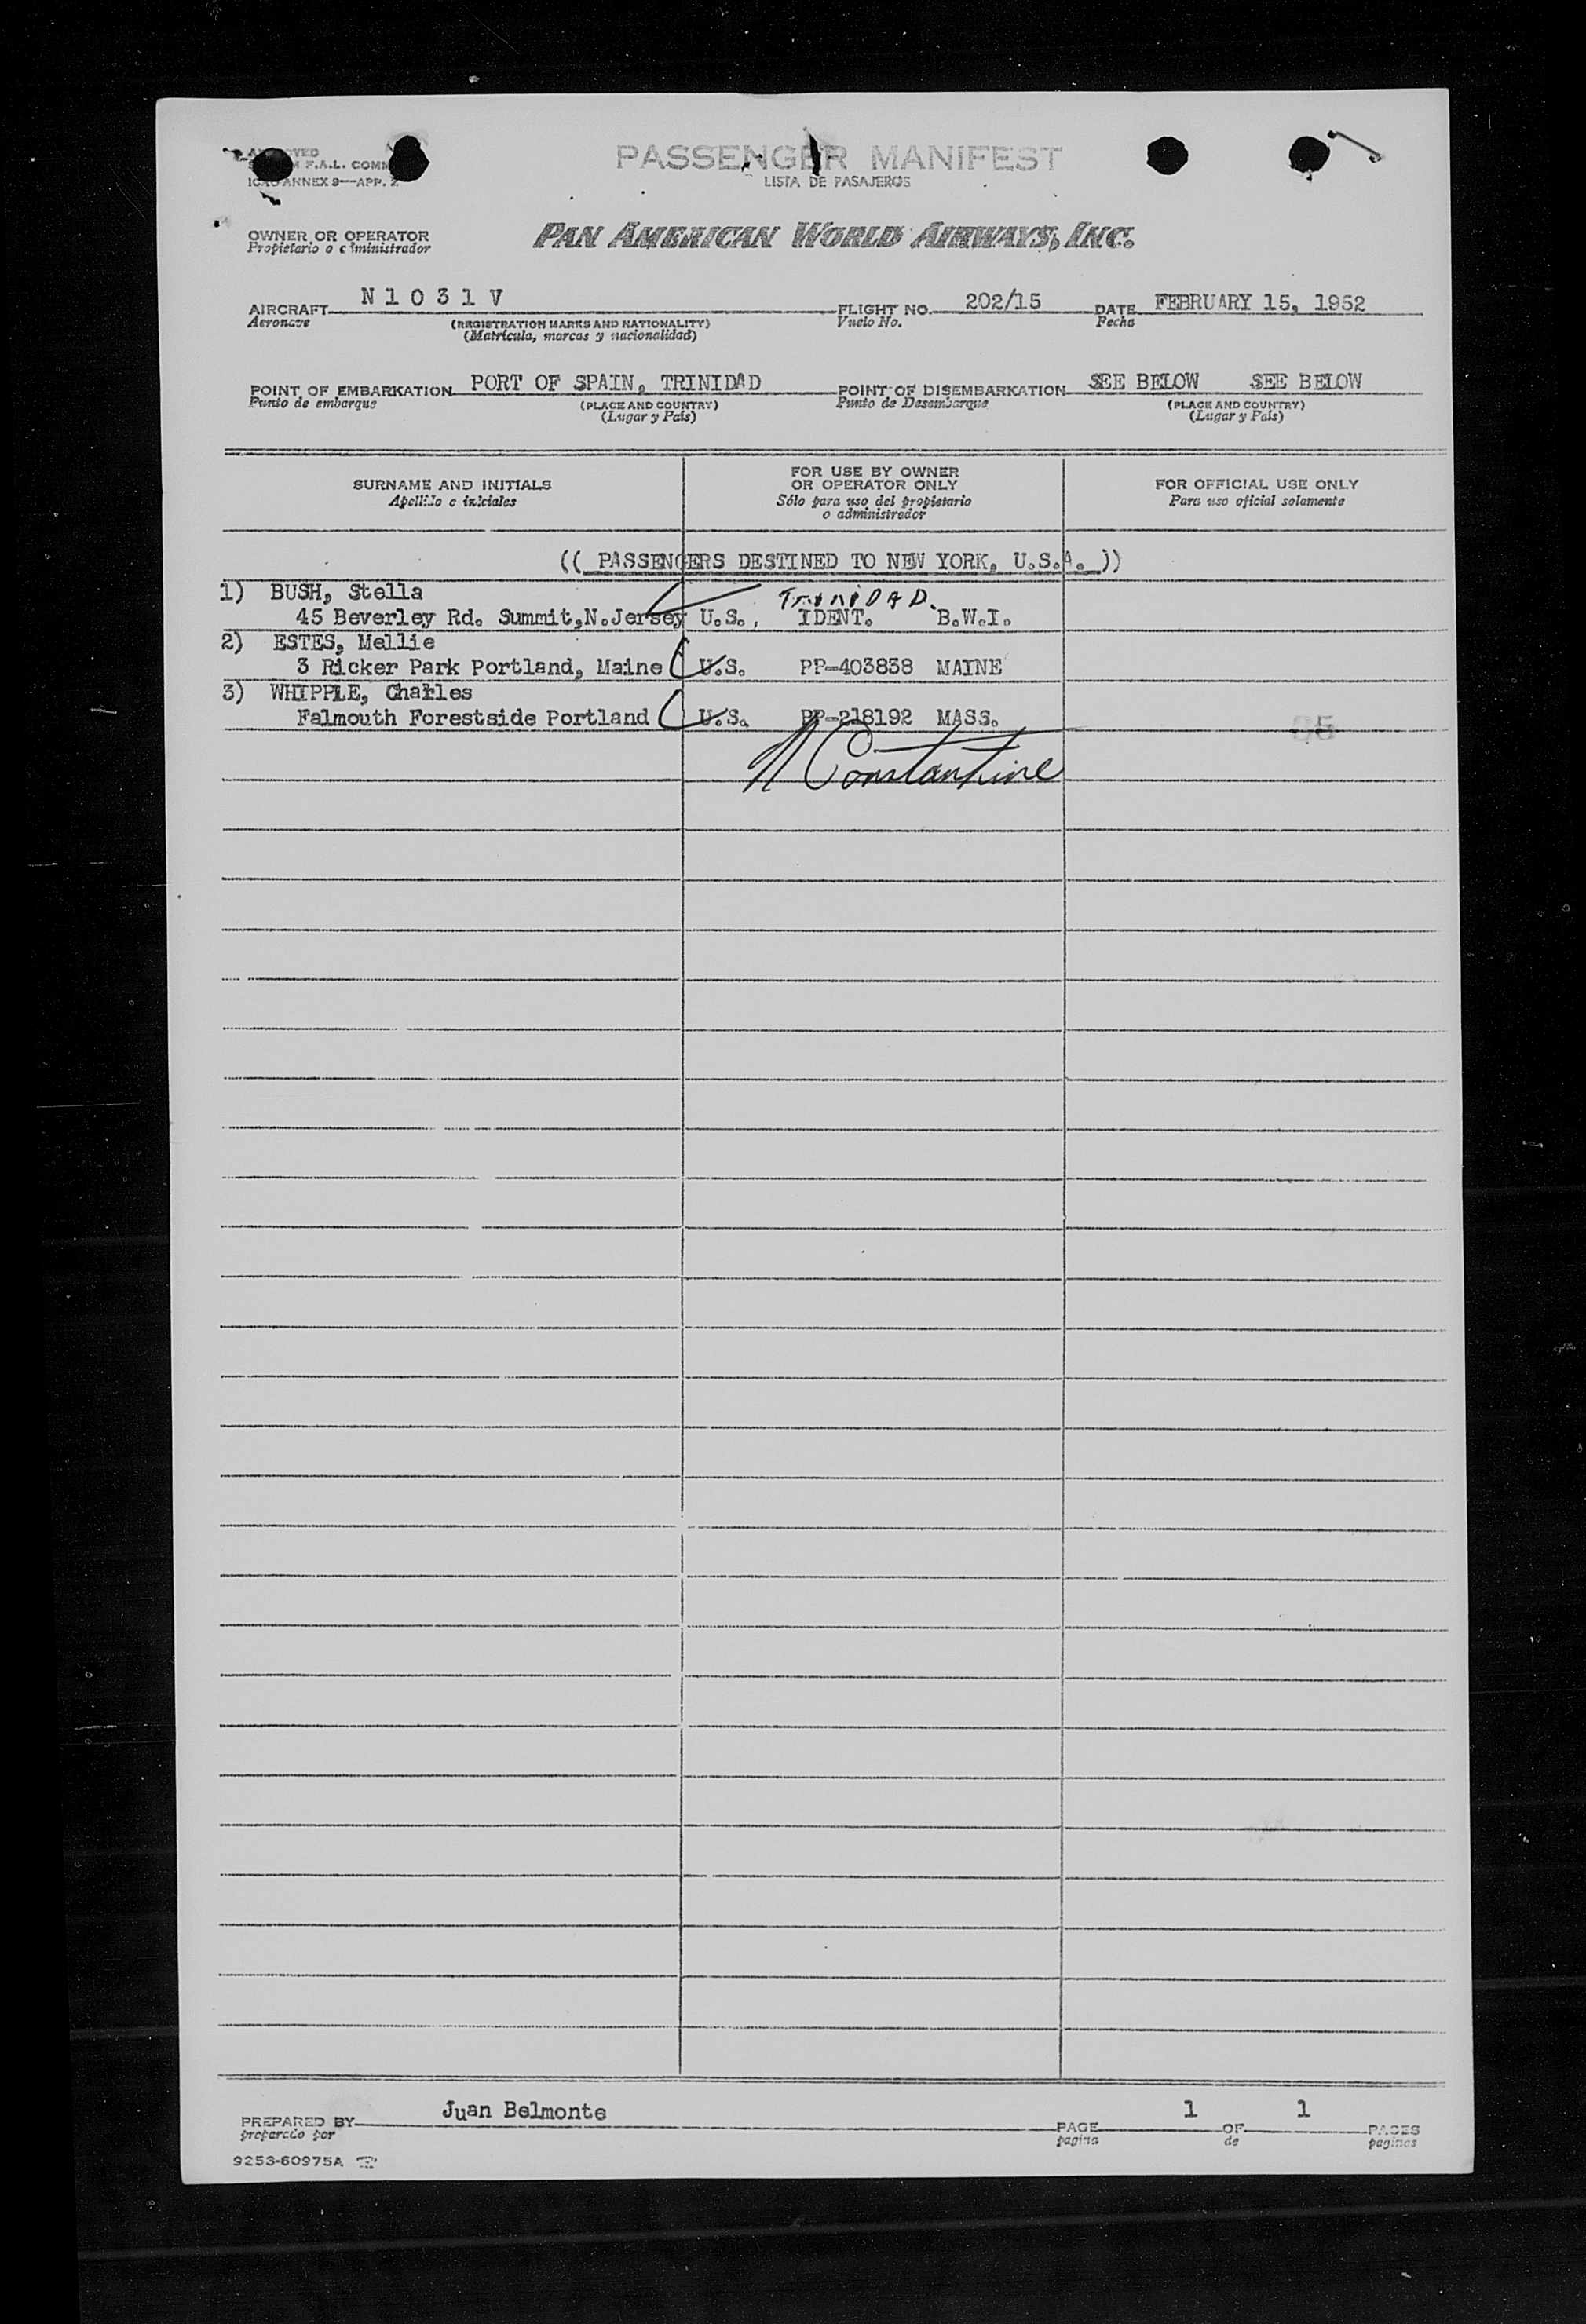 PASSENGER MANIFEST
LISTA DE PASAJEROS
F.A.L. COMM
ICAO ANNEX 9—APP. 2
OWNER OR OPERATOR
Propietario o administrador
PAN AMERICAN WORLD AIRWAYS, INC.
AIRCRAFT N 1 0 3 1 V FLIGHT NO. 202/15 DATE FEBRUARY 15, 1952
Aeronave (REGISTRATION MARKS AND NATIONALITY) Vuelo No. Fecha
(Matrícula, marcas y nacionalidad)
POINT OF EMBARKATION PORT OF SPAIN, TRINIDAD POINT OF DISEMBARKATION SEE BELOW SEE BELOW
Punto de embarque (PLACE AND COUNTRY) Punto de Desembarque (PLACE AND COUNTRY)
(Lugar y País) (Lugar y País)
SURNAME AND INITIALS FOR USE BY OWNER OR OPERATOR ONLY FOR OFFICIAL USE ONLY
Apellido e iniciales Sólo para uso del propietario o administrador Para uso oficial solamente
(( PASSENGERS DESTINED TO NEW YORK, U.S.A. ))
1) BUSH, Stella TRINIDAD.
45 Beverley Rd. Summit,N.Jersey U.S., IDENT. B.W.I.
2) ESTES, Mellie
3 Ricker Park Portland, Maine U.S. PP-403838 MAINE
3) WHIPPLE, Charles
Falmouth Forestside Portland U.S. PP-218192 MASS.
Constantine
PREPARED BY Juan Belmonte PAGE 1 OF 1 PAGES
preparado por pagina de paginas
9253-60975A